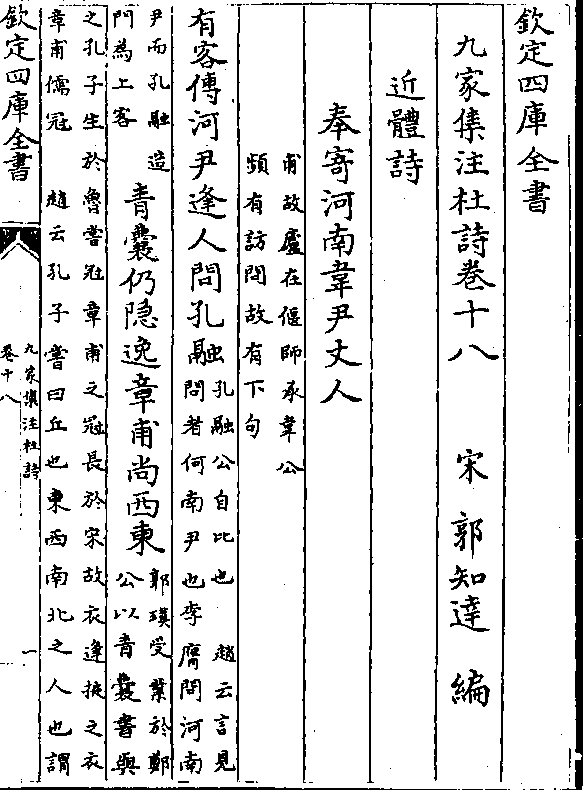 欽定四庫全書
九家集注杜詩卷十八　宋　郭知達　編
近體詩
奉寄河南韋尹丈人
甫故廬在偃師承韋公
頻有訪問故有下句
有客傳河尹逢人問孔融
孔融公自比也　趙云言見
問者何南尹也李膺問河南
尹而孔融造
門為上客
青囊仍隐逸章甫尚西東
郭璞受業於鄭
公以青囊書與
之孔子生於魯嘗冠章甫之冠長於宋故衣逢掖之衣
章甫儒冠　趙云孔子嘗曰丘也東西南北之人也謂
欽定四庫全書
九家集注杜詩
卷十八
一